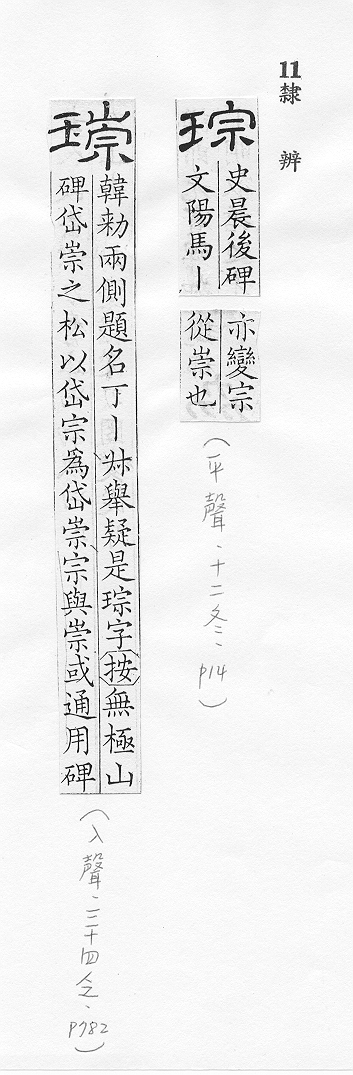 11隸 辨
琮
史晨後碑
文陽馬丨
亦變宗
從崇也
(平聲、十二冬、p14)
韓勑兩側題名丁丨舉疑是琮字按無極山
碑岱崇之松以岱宗為岱崇宗與崇或通用碑
(入聲、三十四、p782)